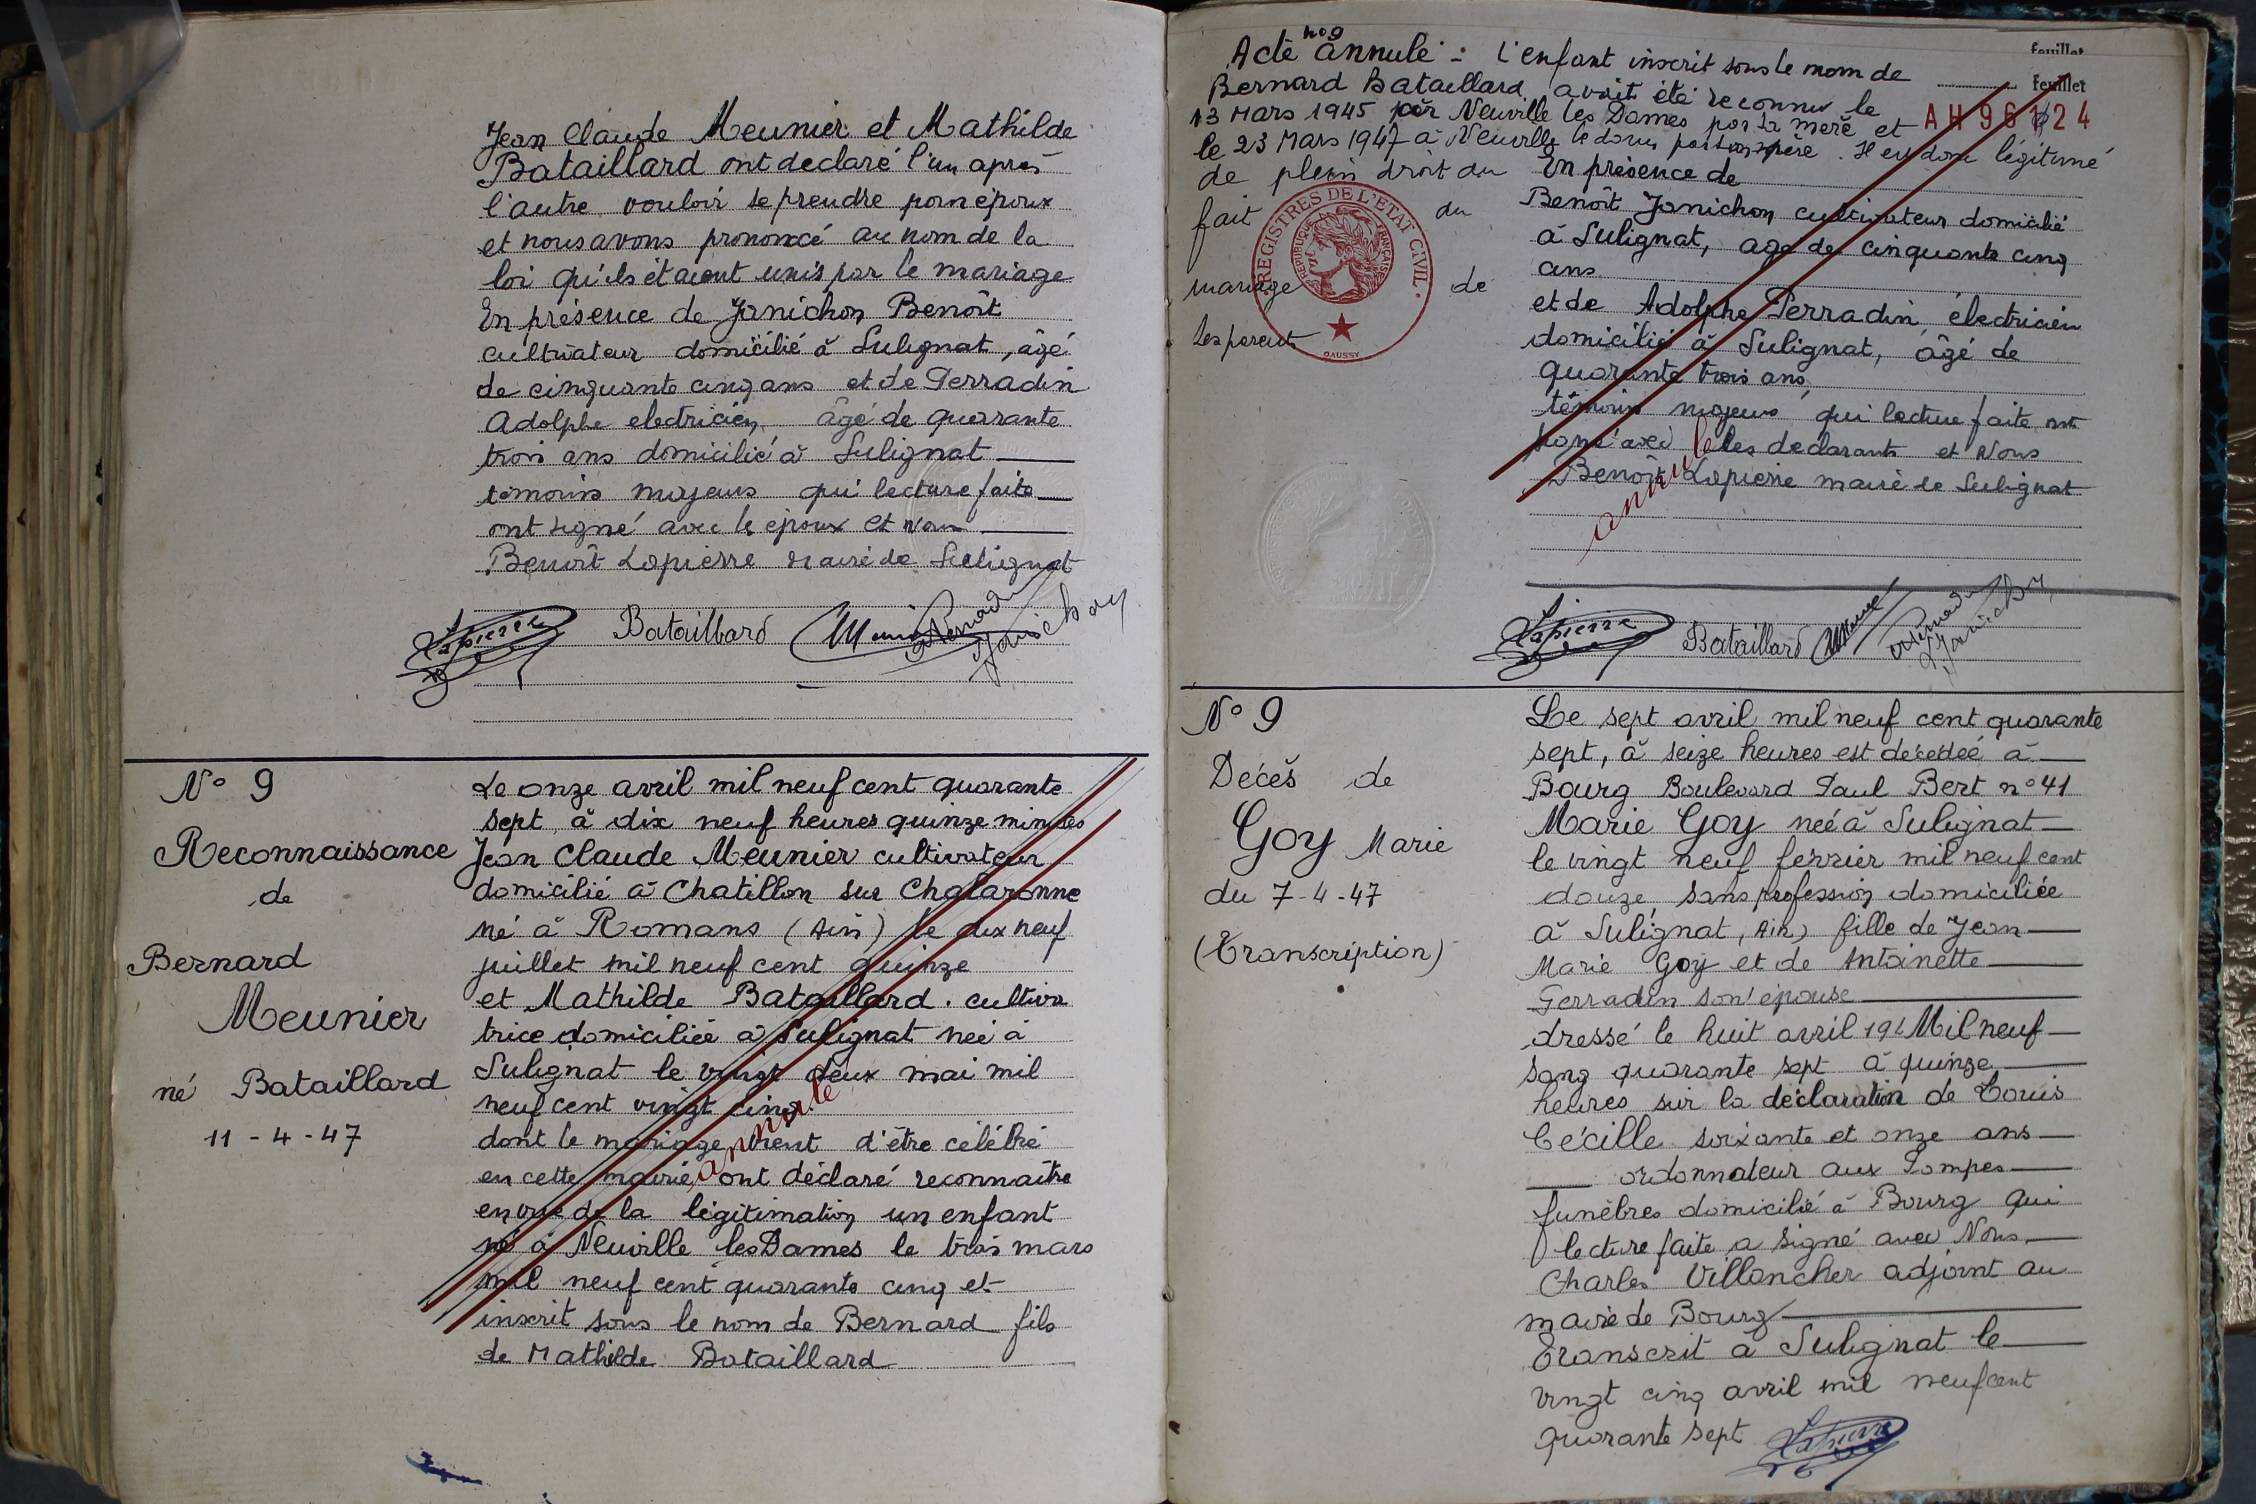 Jean Claude Meunier et Mathilde
Bataillard ont declaré l'un après
l'autre vouloir se prendre pour époux
et nous avons prononcé au nom de la
loi qu'ils étaient unis par le mariage
En présence de Janichon Benoît
cultivateur domicilié à Sulignat, âgé
de cinquante cinq ans et de Perradin
Adolphe electricien âgé de quarante
trois ans domicilié à Sulignat
témoins majeurs qui lecture faite
ont signé avec les époux et Nous
Benoît Lapierre maire de Sulignat
Lapierre Bataillard Meunier Perradin Janichon
N° 9
Reconnaissance
de
Bernard
Meunier
né Bataillard
11-4-47
Le onze avril mil neuf cent quarante
sept à dix neuf heures quinze minutes
Jean Claude Meunier cultivateur
domicilié à Chatillon sur Chalaronne
né à Romans (Ain) le dix neuf
juillet mil neuf cent quinze
et Mathilde Bataillard. cultiva
trice domiciliée à Sulignat née à
Sulignat le vingt deux mai mil
neuf cent vingt cinq.
dont le mariage vient d'être célébré
en cette mairie, ont déclaré reconnaître
en vue de la légitimation un enfant
né à Neuville les Dames le trois mars
mil neuf cent quarante cinq et
inscrit sous le nom de Bernard fils
de Mathilde Bataillard
annulé
Acte n° 9 annulé : L'enfant inscrit sous le nom de
Bernard Bataillard avait été reconnu le
13 Mars 1945 par Neuville les Dames par sa mère et
le 23 Mars 1947 à Neuville le dames par son père. Il est donc légitimé
de plein droit du
fait du
mariage de
les parents
feuillet
feuillet
AH 96 124
REGISTRES DE L'ETAT CIVIL
REPUBLIQUE FRANÇAISE
DAUSSY
En présence de
Benoît Janichon cultivateur domicilié
à Sulignat, age de cinquante cinq
ans
et de Adolphe Perradin électricien
domicilié à Sulignat, âgé de
quarante trois ans
témoins majeurs qui lecture faite ont
signé avec les déclarants et Nous
Benoît Lapierre maire de Sulignat
annulé
Lapierre Bataillard Meunier Perradin Janichon
N° 9
Decès de
Goy Marie
du 7-4-47
(Transcription)
Le sept avril mil neuf cent quarante
sept, à seize heures est décédée à
Bourg Boulevard Paul Bert n° 41
Marie Goy née à Sulignat
le vingt neuf février mil neuf cent
douze, sans profession domiciliée
à Sulignat, Ain, fille de Jean
Marie Goy et de Antoinette
Perradin son épouse
dressé le huit avril 194 Mil neuf
sang quarante sept à quinze
heures sur la déclaration de Louis
Cécille soixante et onze ans
ordonnateur aux Pompes
funèbres domicilié à Bourg qui
lecture faite a signé avec Nous
Charles Villancher adjoint au
maire de Bourg
Transcrit à Sulignat le
vingt cinq avril mil neuf cent
quarante sept Lapierre